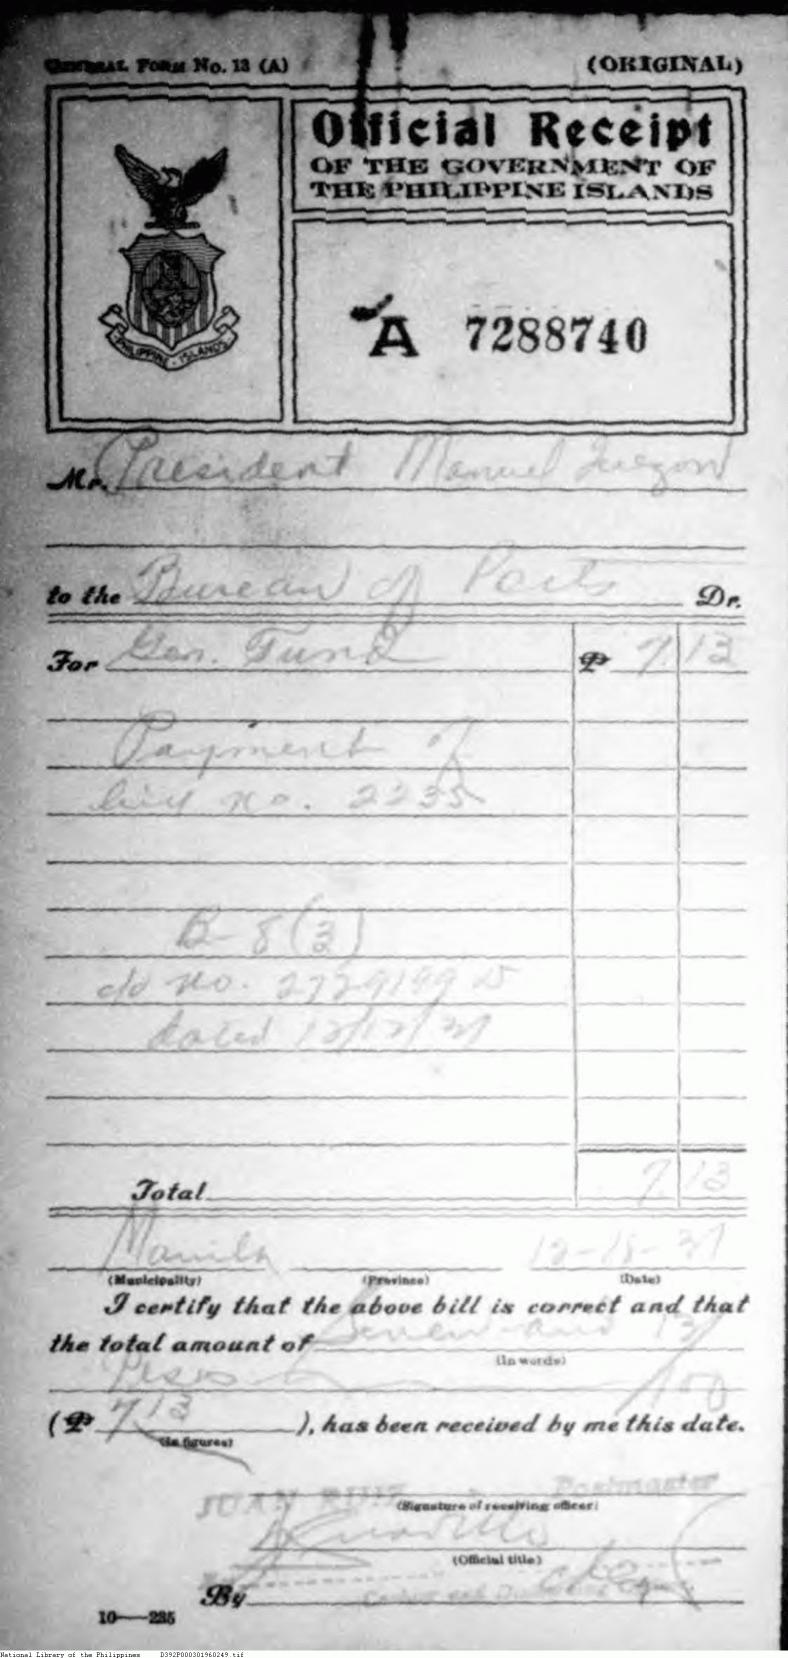 GENERAL FORM No. 13 (A)
(ORIGINAL)
Official Receipt
OF THE GOVERNMENT OF
THE PHILIPPINE ISLANDS
PHILIPPINE ISLANDS
A 7288740
Mr. President Manuel Quezon
to the Bureau of Posts Dr.
For Gen. Fund ₱ 7 13
Payment of
bill no. 2235
B-8(3)
no. 2729199
dated 12/17/37
Total 7 13
Manila 12-18-37
(Municipality) (Province) (Date)
I certify that the above bill is correct and that
the total amount of Seven and 13/100
(In words)
Pesos
(₱ 7 13), has been received by me this date.
(In figures)
JUAN RUIZ Postmaster
(Signature of receiving officer)
(Official title)
By
10—235
National Library of the Philippines D392P000301960249.tif